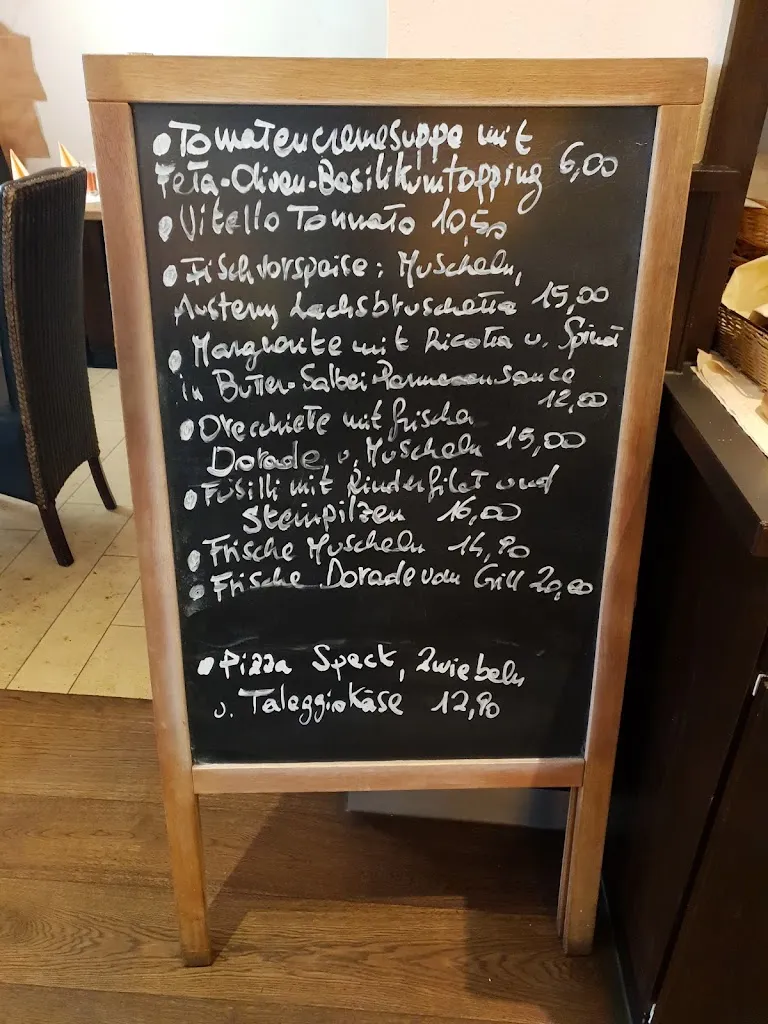 • Tomatencremesuppe mit
Feta-Oliven-Basilikumtopping 6,00
• Vitello Tonnato 10,50
• Fischvorspeise: Muscheln,
Austern, Lachsbruschetta 15,00
• Margherite mit Ricotta u. Spinat
in Butter-Salbei-Parmesansauce
12,00
• Orechiete mit frischer
Dorade u. Muscheln 15,00
• Fusilli mit Rinderfilet und
Steinpilzen 16,00
• Frische Muscheln 14,90
• Frische Dorade vom Grill 20,00
• Pizza Speck, Zwiebeln
u. Taleggiokäse 12,90